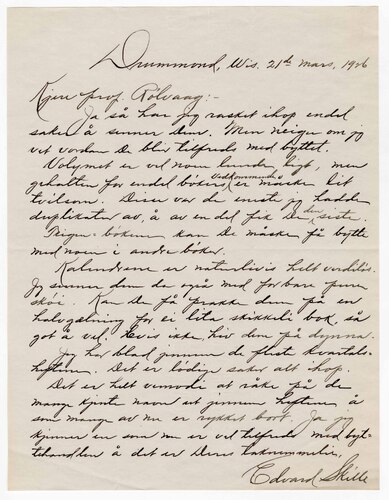 Drummond, Wis. 21de mars, 1926
Kjære prof. Rölvaag:-
Ja så har jeg rasket ihop endel
saker å senner Dem. Men neigu om jeg
vet vordan De blir tilfreds med byttet.
Volymet er vel noen lunde ligt, men
gehalten for endel bökers vedkommende er måske lit
tvilsom. Disse var de eneste jeg hadde
duplikater av, å av en del fik De den siste.
Peigen-böken kan De måske få bytte
med noen i andre böker.
Kalendrene er naturligvis helt verdilös.
Jeg senner dem da også med for bare pure
skøi. Kan De få prakke dem på en
halvgalning for ei lita skikkeli bok, så
got å vel. Hvis ikke, hiv dem på dynna.
Jeg har blad jennem de fleste kvartals-
heftene. Det er lödige saker alt ihop.
Det er helt vemodig at råke på de
mange kjente navn ut jennem heftene å
som mange av nu er rykket bort. Ja jeg
kjenner en som nu er vel tilfreds med byt-
tehandlen å det er Deres taknemmelie,
Edvard Skille